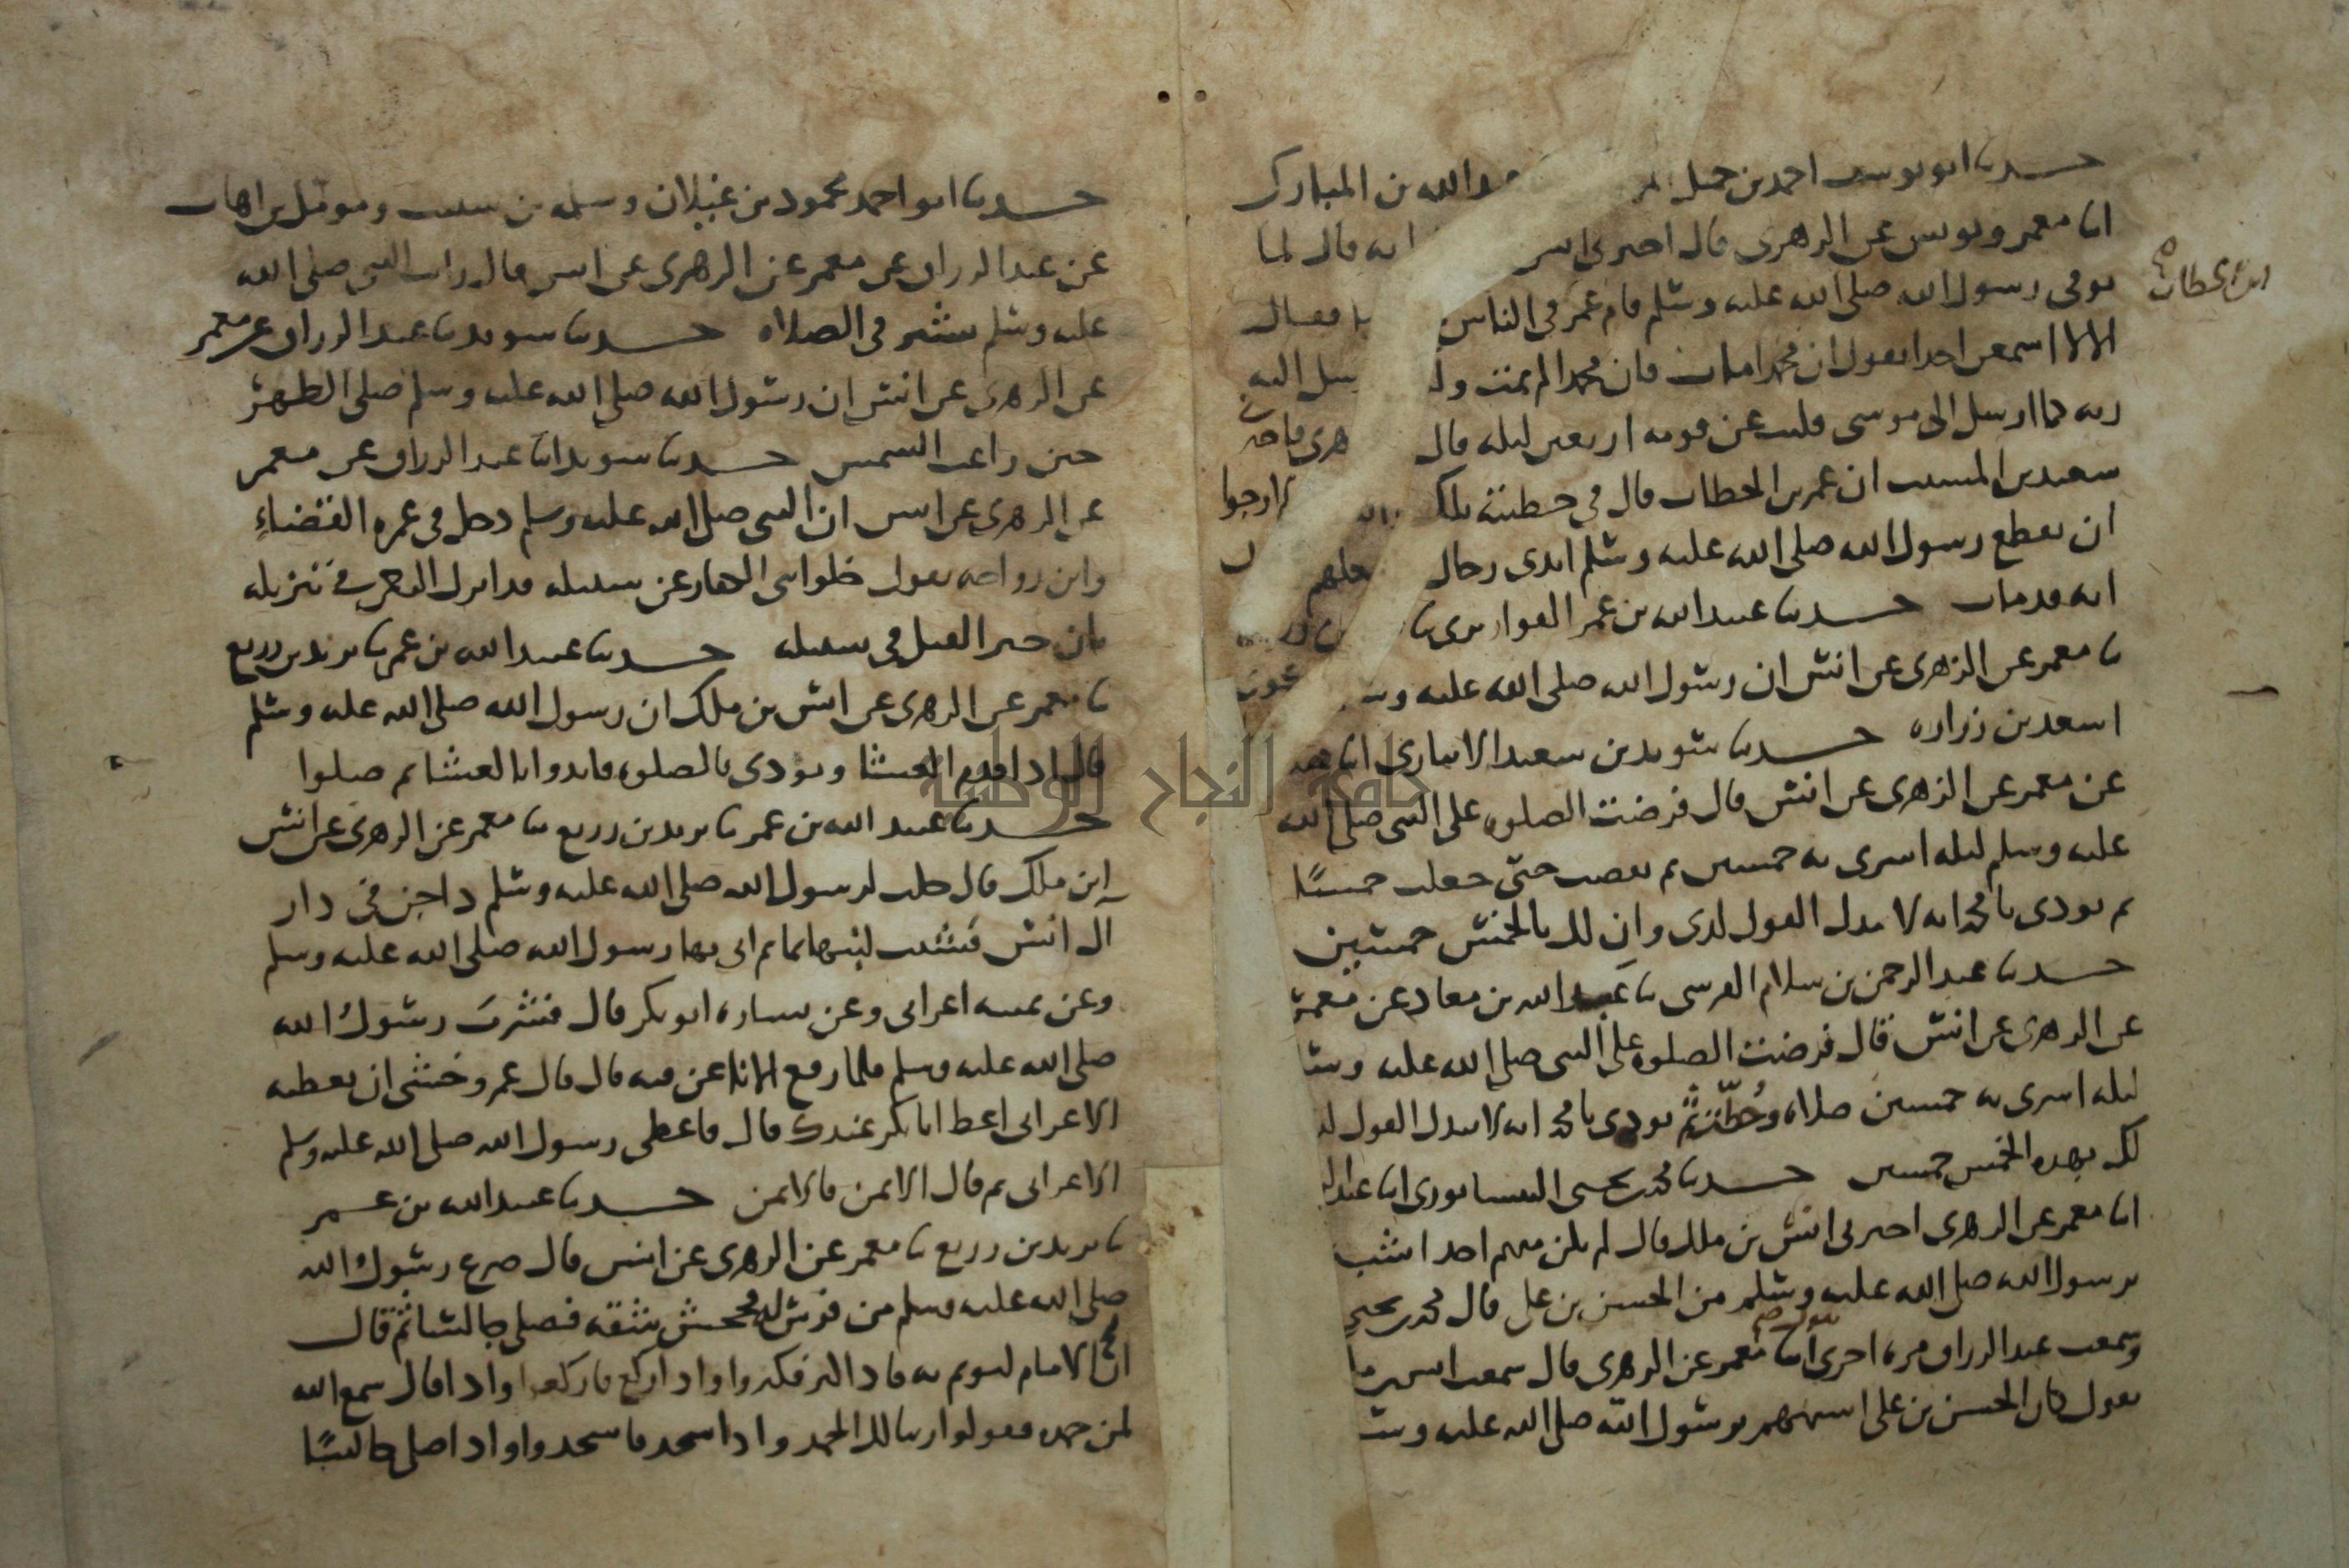 حدثنا ابو يوسف احمد بن جميل عبد الله بن المبارك
انا معمر ويونس عن الزهري قال اخبرني انس انه قال لما
توفي رسول الله صلى الله عليه وسلم قام عمر في الناس فقال
ابن الخطاب صح
الا لا اسمعن احدا يقول ان محمدا مات فان محمدا لم يمت ارسل اليه
ربه كما ارسل الى موسى فلبث عن قومه اربعين ليلة قال الزهري فاخبرني
سعيد بن المسيب ان عمر بن الخطاب قال في خطبته تلك لارجوا
ان يقطع رسول الله صلى الله عليه وسلم ايدي رجال
انه قد مات حدثنا عبيد الله بن عمر القواريري نا
نا معمر عن الزهري عن انس ان رسول الله صلى الله عليه
اسعد بن زراره حدثنا سويد بن سعيد الانباري انا
عن معمر عن الزهري عن انس قال فرضت الصلوة على النبي صلى الله
عليه وسلم ليلة اسري به خمسين ثم نقصت حتى جعلت خمسا
ثم نودي يا محمد انه لا يبدل القول لدي وان لك بالخمس خمسين
حدثنا عبد الرحمن بن سلام القرشي نا عبد الله بن معاذ عن معمر
عن الزهري عن انس قال فرضت الصلوة على النبي صلى الله عليه وسلم
ليلة اسري به خمسين صلاة نودي يا محمد انه لا يبدل القول
لك بهذه الخمس خمسين حدثنا محمد بن يحيى النيسابوري انا
انا معمر عن الزهري اخبرني انس بن ملك قال لم يكن منهم احد اشبه
برسول الله صلى الله عليه وسلم من الحسن بن علي قال محمد بن يحيى
وسمعت عبد الرزاق مره اخرى انا معمر عن الزهري قال سمعت انس بن
يقول كان الحسن بن علي اشبههم برسول الله صلى الله عليه وسلم
حدثنا ابو احمد محمود بن غيلان وسلمه بن شبيب ومومل بن اهاب
عن عبد الرزاق عن معمر عن الزهري عن انس قال رايت النبي صلى الله
عليه وسلم يشير في الصلاة حدثنا سويد نا عبد الرزاق عن معمر
عن الزهري عن انس ان رسول الله صلى الله عليه وسلم صلى الظهر
حين زاغت الشمس حدثنا سويد انا عبد الرزاق عن معمر
عن الزهري عن انس ان النبي صلى الله عليه وسلم دخل في عمره القضاء
وابن رواحه يقول خلوا بني الكفار عن سبيله قد انزل الرحمن في تنزيله
بان خير القتل في سبيله حدثنا عبيد الله بن عمر نا يزيد بن زريع
نا معمر عن الزهري عن انس بن ملك ان رسول الله صلى الله عليه وسلم
قال اذا قدم العشا ونودي بالصلوة فابدوا بالعشا ثم صلوا
حدثنا عبيد الله بن عمر نا يزيد بن زريع نا معمر عن الزهري عن انس
ابن ملك قال حلبت لرسول الله صلى الله عليه وسلم داجن في دار
آل انس فشيب لبنها بماء ثم اتي بها رسول الله صلى الله عليه وسلم
وعن يمينه اعرابي وعن يساره ابو بكر قال فشرب رسول الله
صلى الله عليه وسلم فلما رفع الانا عن فيه قال قال عمر وخشي ان يعطيه
الاعرابي اعط ابا بكر عندك قال فاعطى رسول الله صلى الله عليه وسلم
الاعرابي ثم قال الايمن فالايمن حدثنا عبيد الله بن عمر
نا يزيد بن زريع نا معمر عن الزهري عن انس قال صرع رسول الله
صلى الله عليه وسلم من فرس له فجحش شقه فصلى جالسا ثم قال
انما الامام ليوتم به فاذا كبر فكبروا واذا ركع فاركعوا واذا قال سمع الله
لمن حمده فقولوا ربنا لك الحمد واذا سجد فاسجدوا واذا صلى جالسا
جامعة النجاح الوطنية